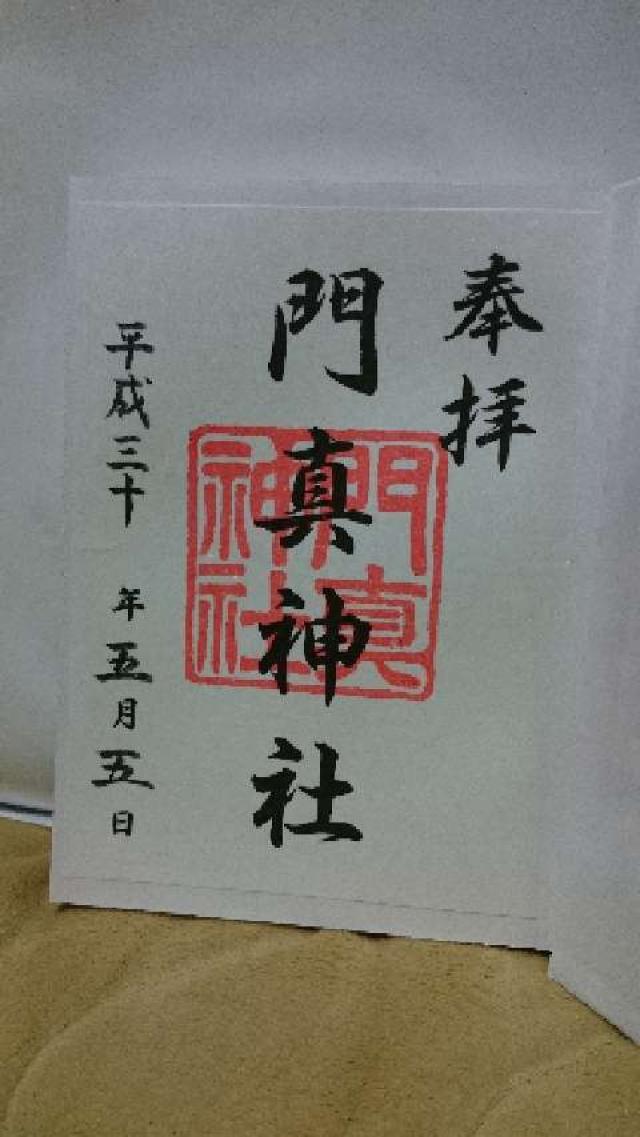 奉拝
門真神社
門真神社
平成三十年五月五日